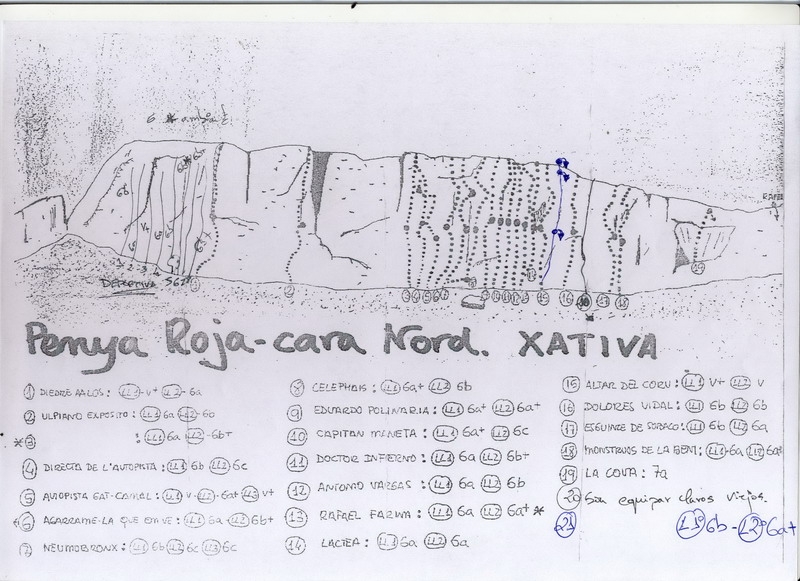 6b
V+
1 2 3 4 5 6 7
1
2
3 4 5 6 7
15 16 17 18
19
Penya Roja-cara Nord. XATIVA
1 DIEDRE AALOS: LL1-V+ LL2-6a
2 ULPIANO EXPOSITO: LL1 6a LL2-6b
*3 : LL1 6a LL2-6b+
4 DIRECTA DE L'AUTOPISTA: LL1 6b LL2 6c
5 AUTOPISTA GAT-CANAL: LL1 V LL2-6a+ LL3 V+
6 AGARRAME-LA QUE EM VE: LL1 6a LL2 6b+
7 NEUMOBRONX: LL1 6b LL2 6c LL3 6c
8 CELEPHAIS: LL1 6a+ LL2 6b
9 EDUARDO POLINARIA: LL1 6a+ LL2 6a+
10 CAPITAN MANETA: LL1 6a+ LL2 6c
11 DOCTOR INFIERNO: LL1 6a LL2 6b+
12 ANTONIO VARGAS: LL1 6a LL2 6b
13 RAFAEL FARINA: LL1 6a LL2 6a+ *
14 LACTEA: LL1 6a LL2 6a
15 ALTAR DEL CORV: LL1 V+ LL2 V
16 DOLORES VIDAL: LL1 6b LL2 6b
17 ESGUINZE DE SOBACO: LL1 6b LL2 6a
18 MONSTRUOS DE LA BENI: LL1-6a LL2 6a+
19 LA COVA: 7a
20 Sin equipar clavos viejos.
21 L1º 6b - L2º 6a+